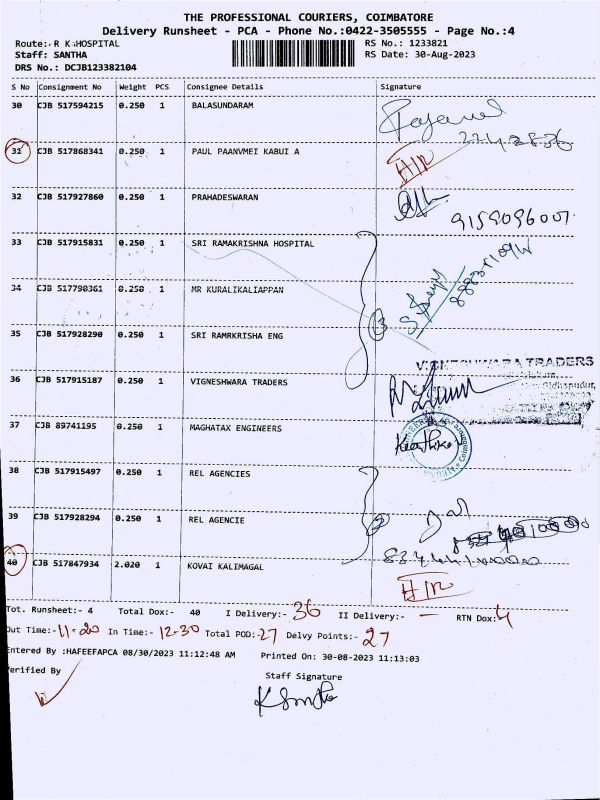 THE PROFESSIONAL COURIERS, COIMBATORE
Delivery Runsheet - PCA - Phone No.:0422-3505555 - Page No.:4
Route: R K HOSPITAL RS No.: 1233821
Staff: SANTHA RS Date: 30-Aug-2023
DRS No.: DCJB123382104
S No Consignment No Weight PCS Consignee Details Signature
30 CJB 517594215 0.250 1 BALASUNDARAM
31 CJB 517868341 0.250 1 PAUL PAANVMEI KABUI A
32 CJB 517927860 0.250 1 PRAHADESWARAN
9159096001
33 CJB 517915831 0.250 1 SRI RAMAKRISHNA HOSPITAL
34 CJB 517790361 0.250 1 MR KURALIKALIAPPAN
35 CJB 517928290 0.250 1 SRI RAMRKRISHA ENG
3
VIGNESHWARA TRADERS
36 CJB 517915187 0.250 1 VIGNESHWARA TRADERS
37 CJB 89741195 0.250 1 MAGHATAX ENGINEERS
38 CJB 517915497 0.250 1 REL AGENCIES
39 CJB 517928294 0.250 1 REL AGENCIE
2
40 CJB 517847934 2.020 1 KOVAI KALIMAGAL
Tot. Runsheet:- 4 Total Dox:- 40 I Delivery:- 36 II Delivery:- — RTN Dox: 4
Out Time:- 11-20 In Time:- 12-30 Total POD:- 27 Delvy Points:- 27
Entered By :HAFEEFAPCA 08/30/2023 11:12:48 AM Printed On: 30-08-2023 11:13:03
Verified By Staff Signature